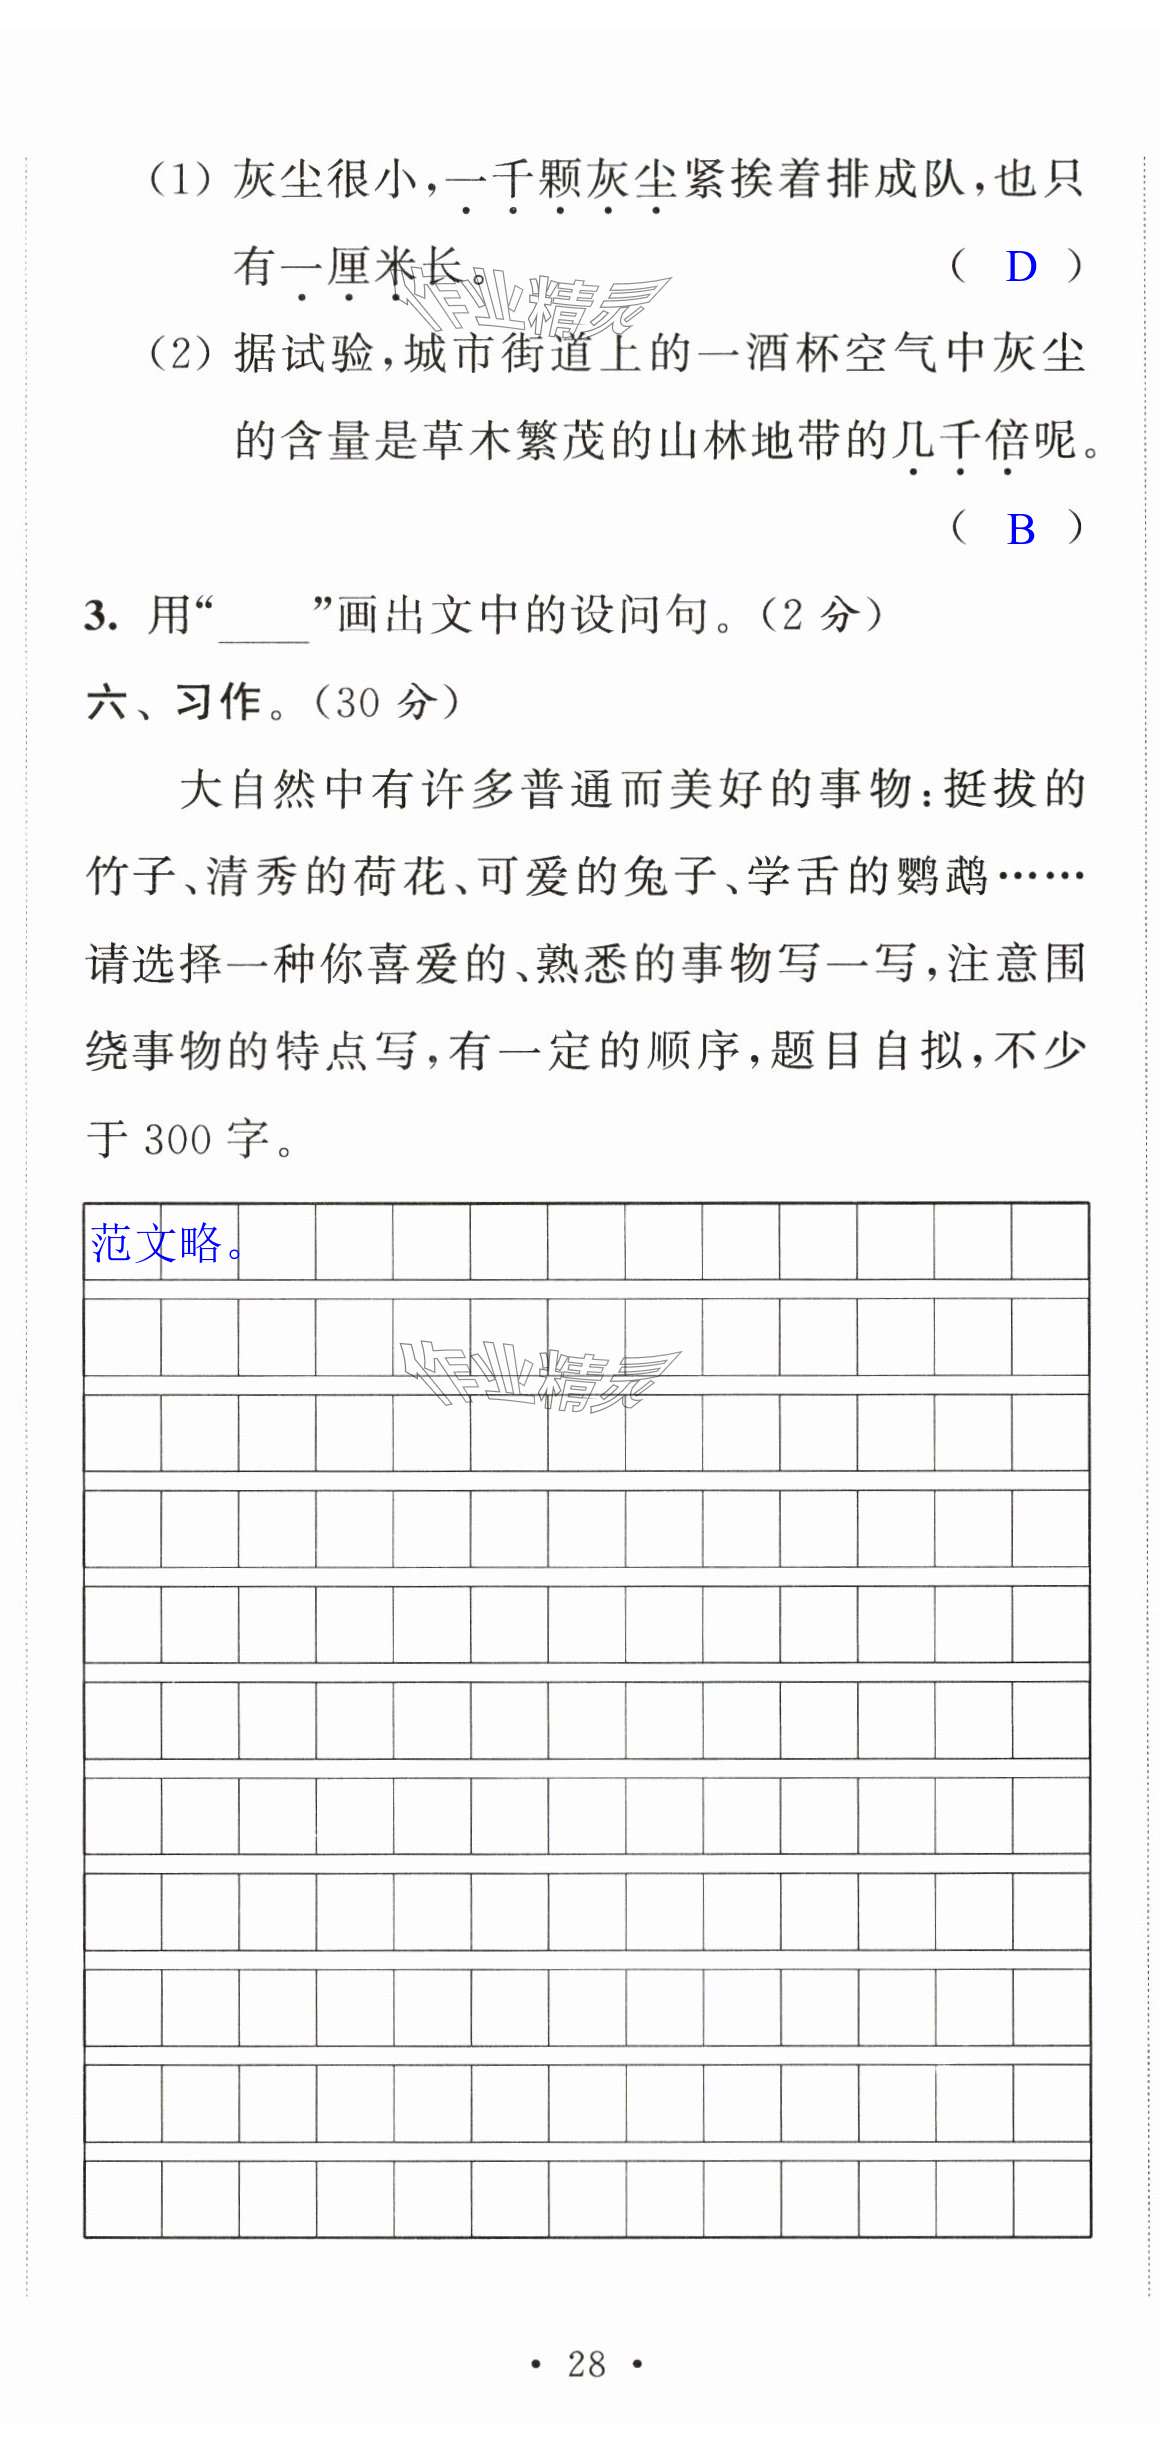 (1) 灰尘很小，一千颗灰尘紧挨着排成队，也只
有一厘米长。 ( D )
(2) 据试验，城市街道上的一酒杯空气中灰尘
的含量是草木繁茂的山林地带的几千倍呢。
( B )
3. 用“____”画出文中的设问句。(2 分)
六、习作。(30 分)
大自然中有许多普通而美好的事物：挺拔的
竹子、清秀的荷花、可爱的兔子、学舌的鹦鹉……
请选择一种你喜爱的、熟悉的事物写一写，注意围
绕事物的特点写，有一定的顺序，题目自拟，不少
于 300 字。
范文略。
作业精灵
作业精灵
· 28 ·